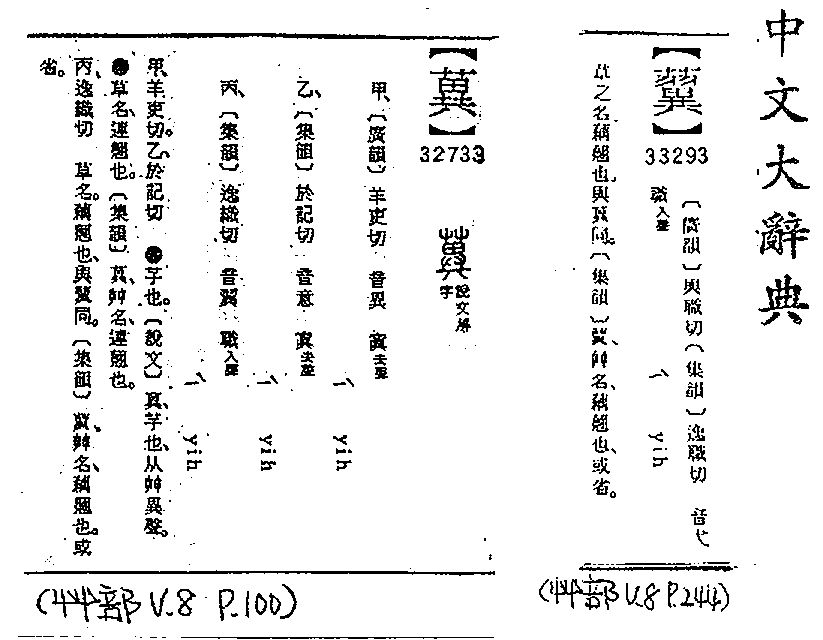 中文大辭典
【】
33293
〔廣韻〕與職切〔集韻〕逸職切 音弋
職入聲 ㄧˋ yih
草之名翹也、與䔬同。〔集韻〕、艸名、翹也、或省。
(艸部 V.8 P.244)
【䔬】
32733
說文解字
甲、〔廣韻〕羊吏切 音異 寘去聲
ㄧˋ yih
乙、〔集韻〕於記切 音意 寘去聲
ㄧˋ yih
丙、〔集韻〕逸織切 音翼 職入聲
ㄧˋ yih
甲、羊吏切。乙、於記切 芋也。〔說文〕䔬、芋也、从艸異聲。
草名、連翹也。〔集韻〕䔬、艸名、連翹也。
丙、逸織切 草名。翹也、與同。〔集韻〕、艸名、翹也。或
省。
(艸部 V.8 P.100)